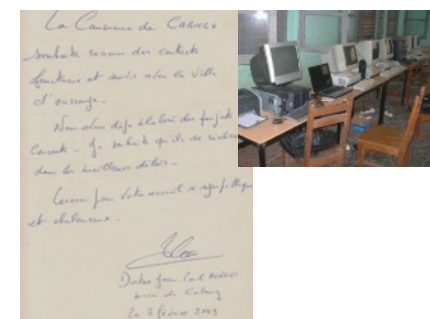 La Commune de CABOURG
souhaite des contacts
fructueux et suivis avec la ville
Nous avons déjà élaboré des projets
concrets - Je souhaite qu'ils se réalisent
dans les meilleurs délais -
Merci pour votre accueil si sympathique
et chaleureux.
Jean-Paul
maire de Cabourg
février 2003